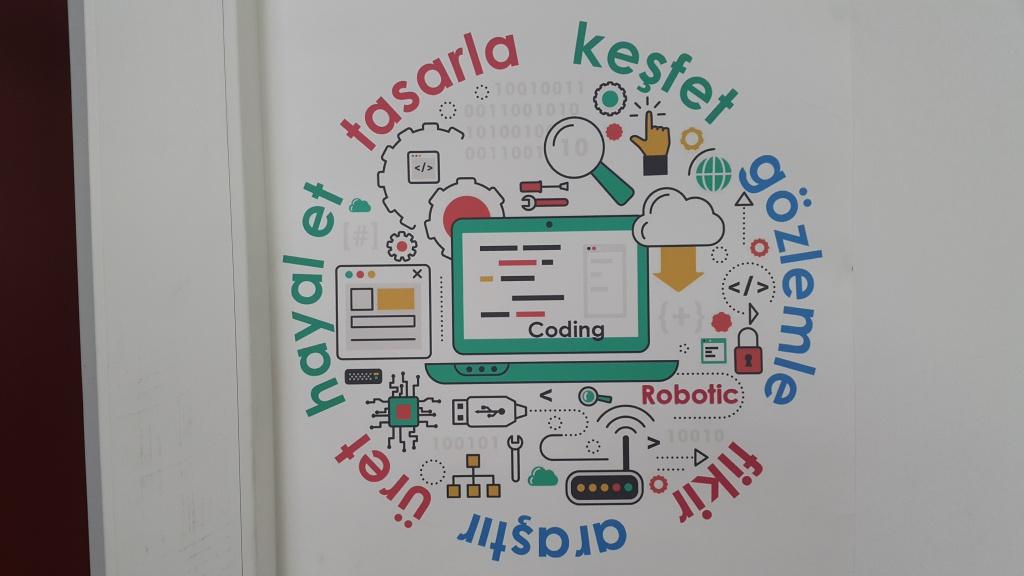 tasarla
keşfet
gözlemle
fikir
araştır
üret
hayal et
10010011
0011001010
1010010
0011001
10
</>
[#]
</>
{+}
Coding
Robotic
<
>
100101
10010